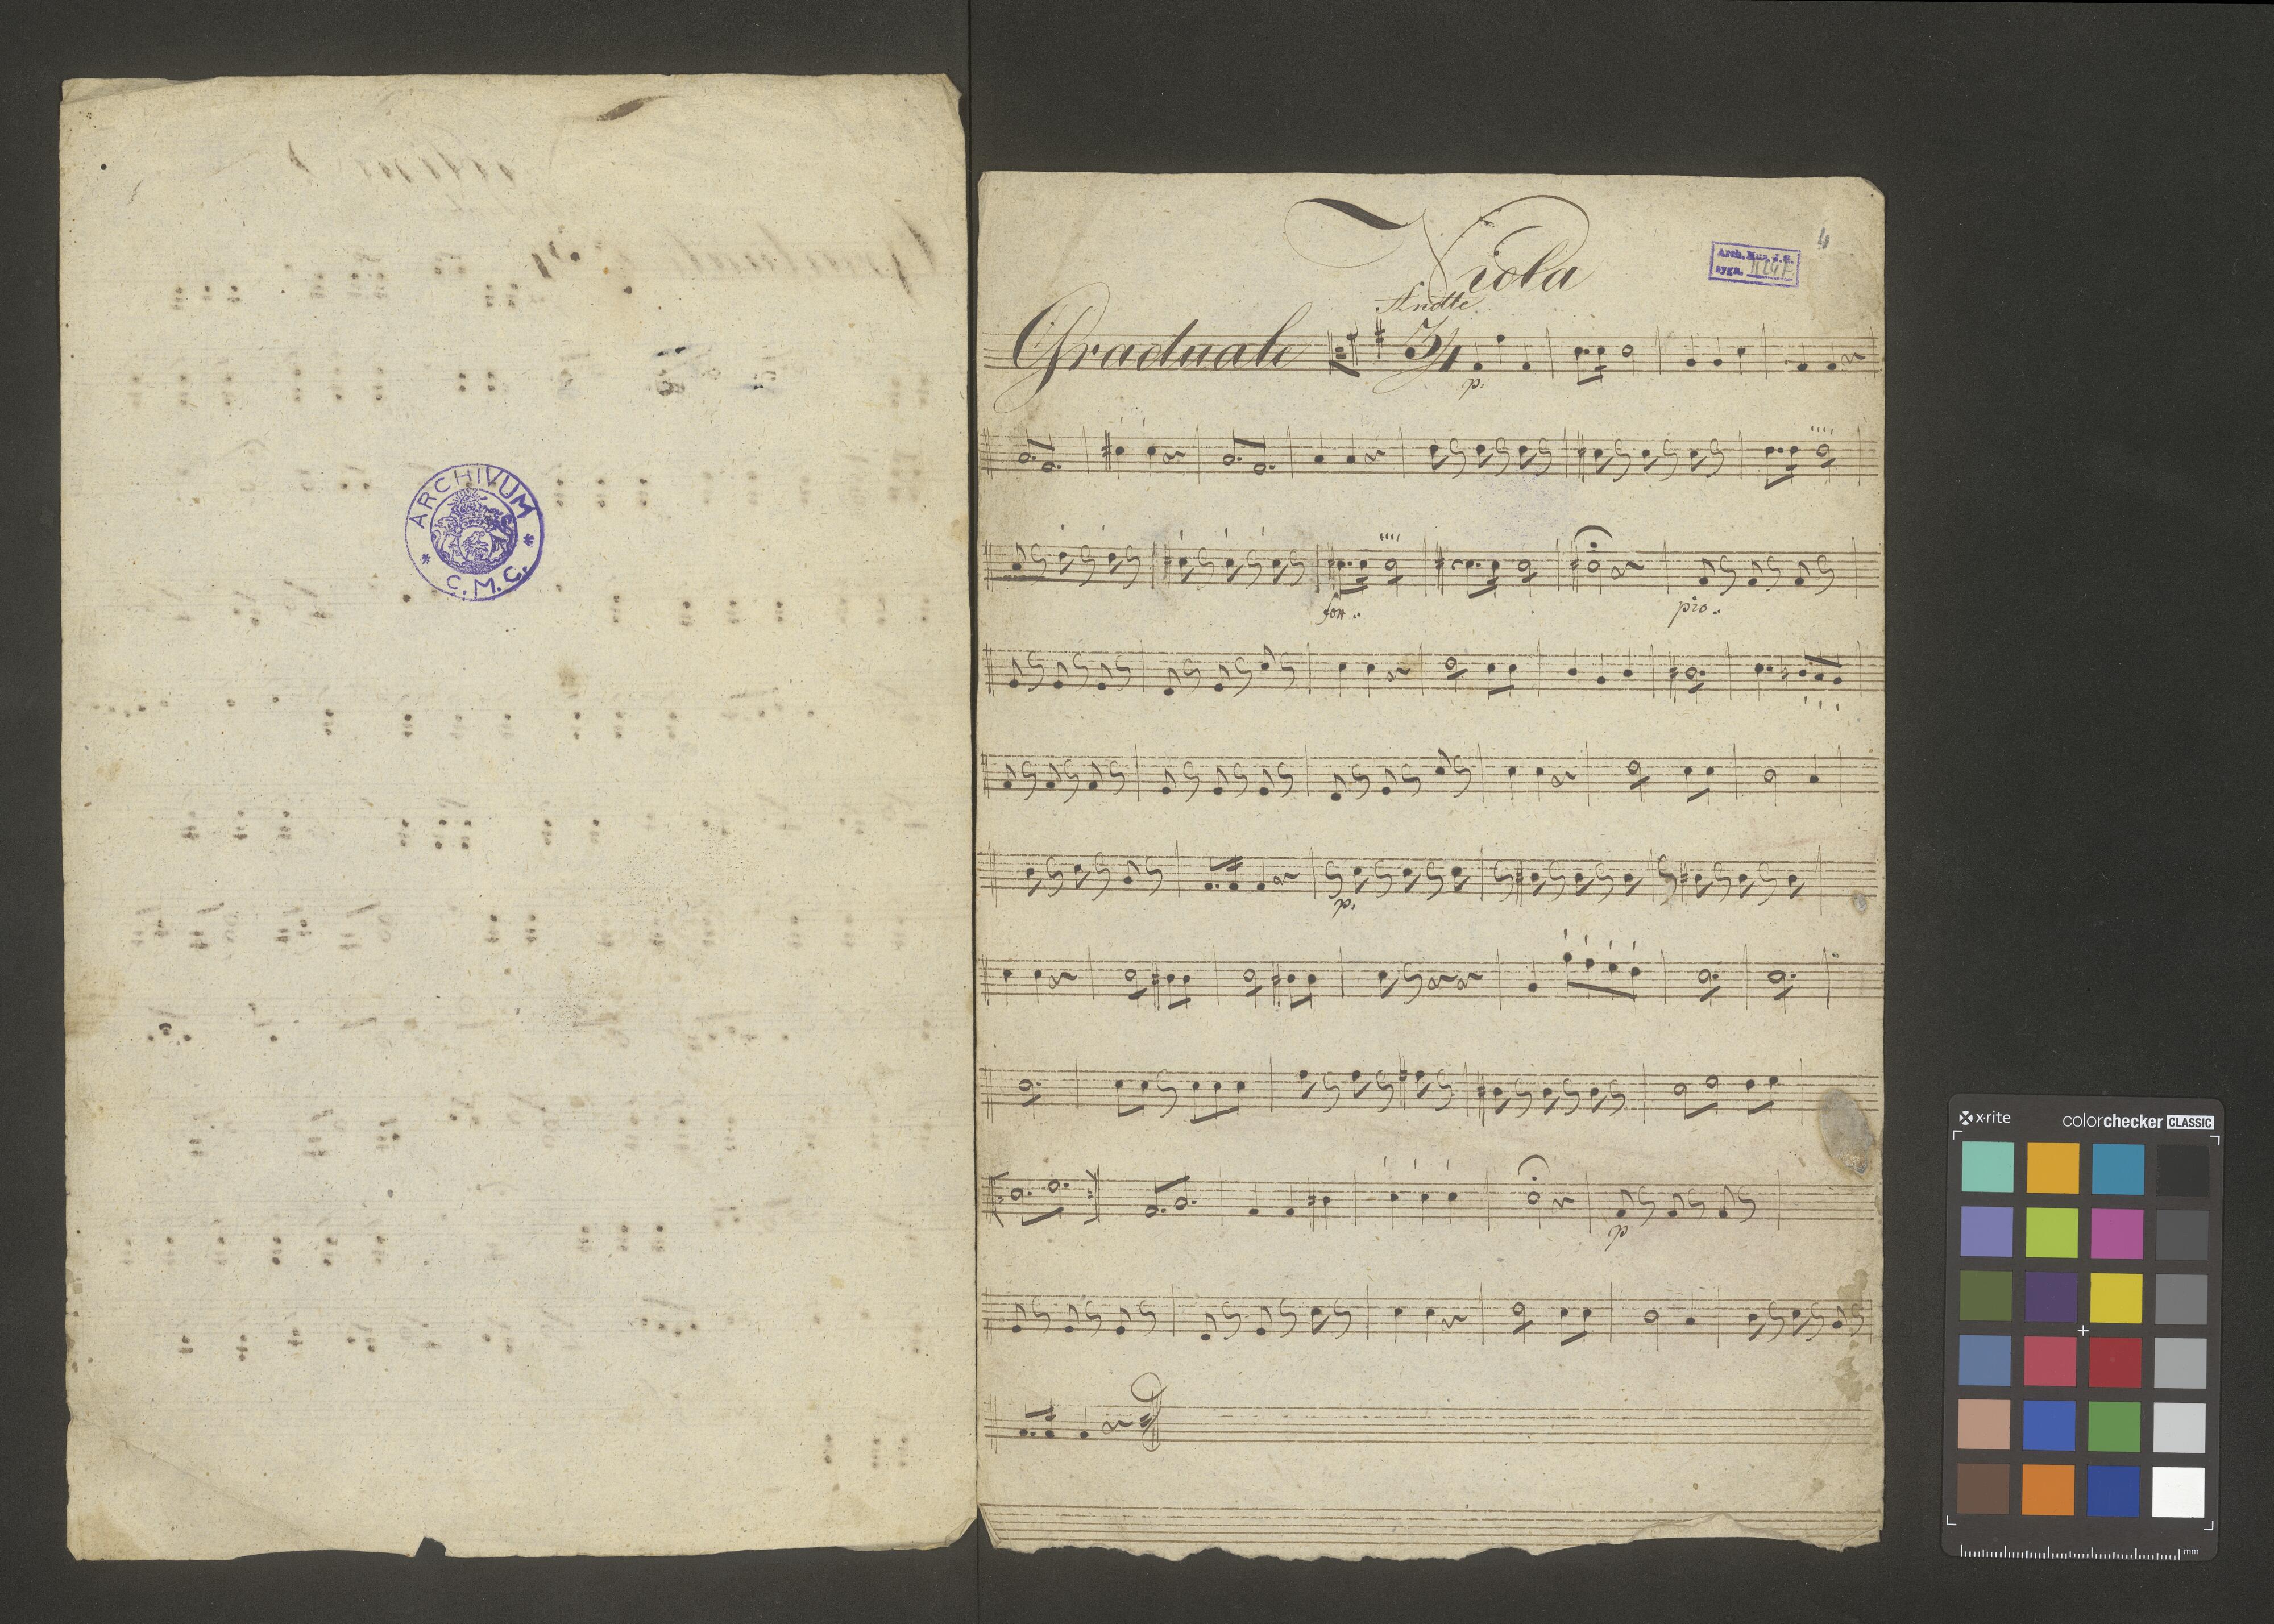 ARCHIVUM
* C.M.C. *
Viola
4
Arch. Mus. J.G.
sygn.
Andte
Graduale 3/4
p.
for:
pio:
p:
p
x-rite colorchecker CLASSIC
mm